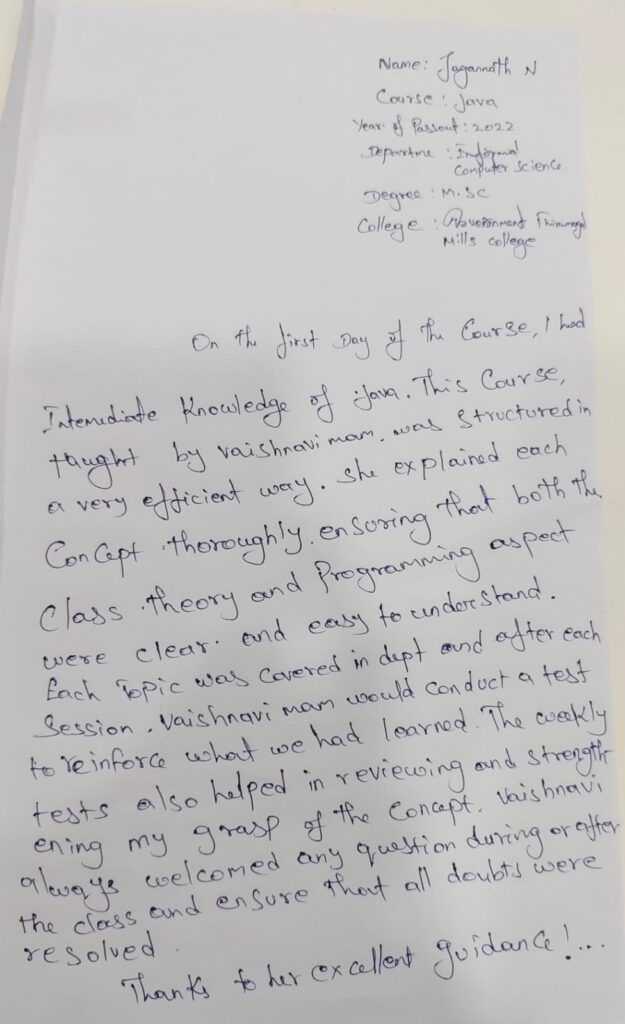 Name: Jagannath N
Course: Java
Year of Passout: 2022
Departme :
Computer Science.
Degree : M.SC
College : Government
Mills college
On the first Day of the Course, I had
Intemediate Knowledge of Java. This Course,
taught by vaishnavi mam, was structured in
a very efficient way. she explained each
Concept thoroughly, ensuring that both the
Class theory and Programming aspect
were clear and easy to understand.
Each Topic was Covered in dept and after each
Session, Vaishnavi mam would conduct a test
to reinforce what we had learned. The weekly
tests also helped in reviewing and strength
ening my grasp of the Concept. Vaishnavi
always welcomed any question during or after
the class and ensure that all doubts were
resolved.
Thanks to her excellent guidance!...